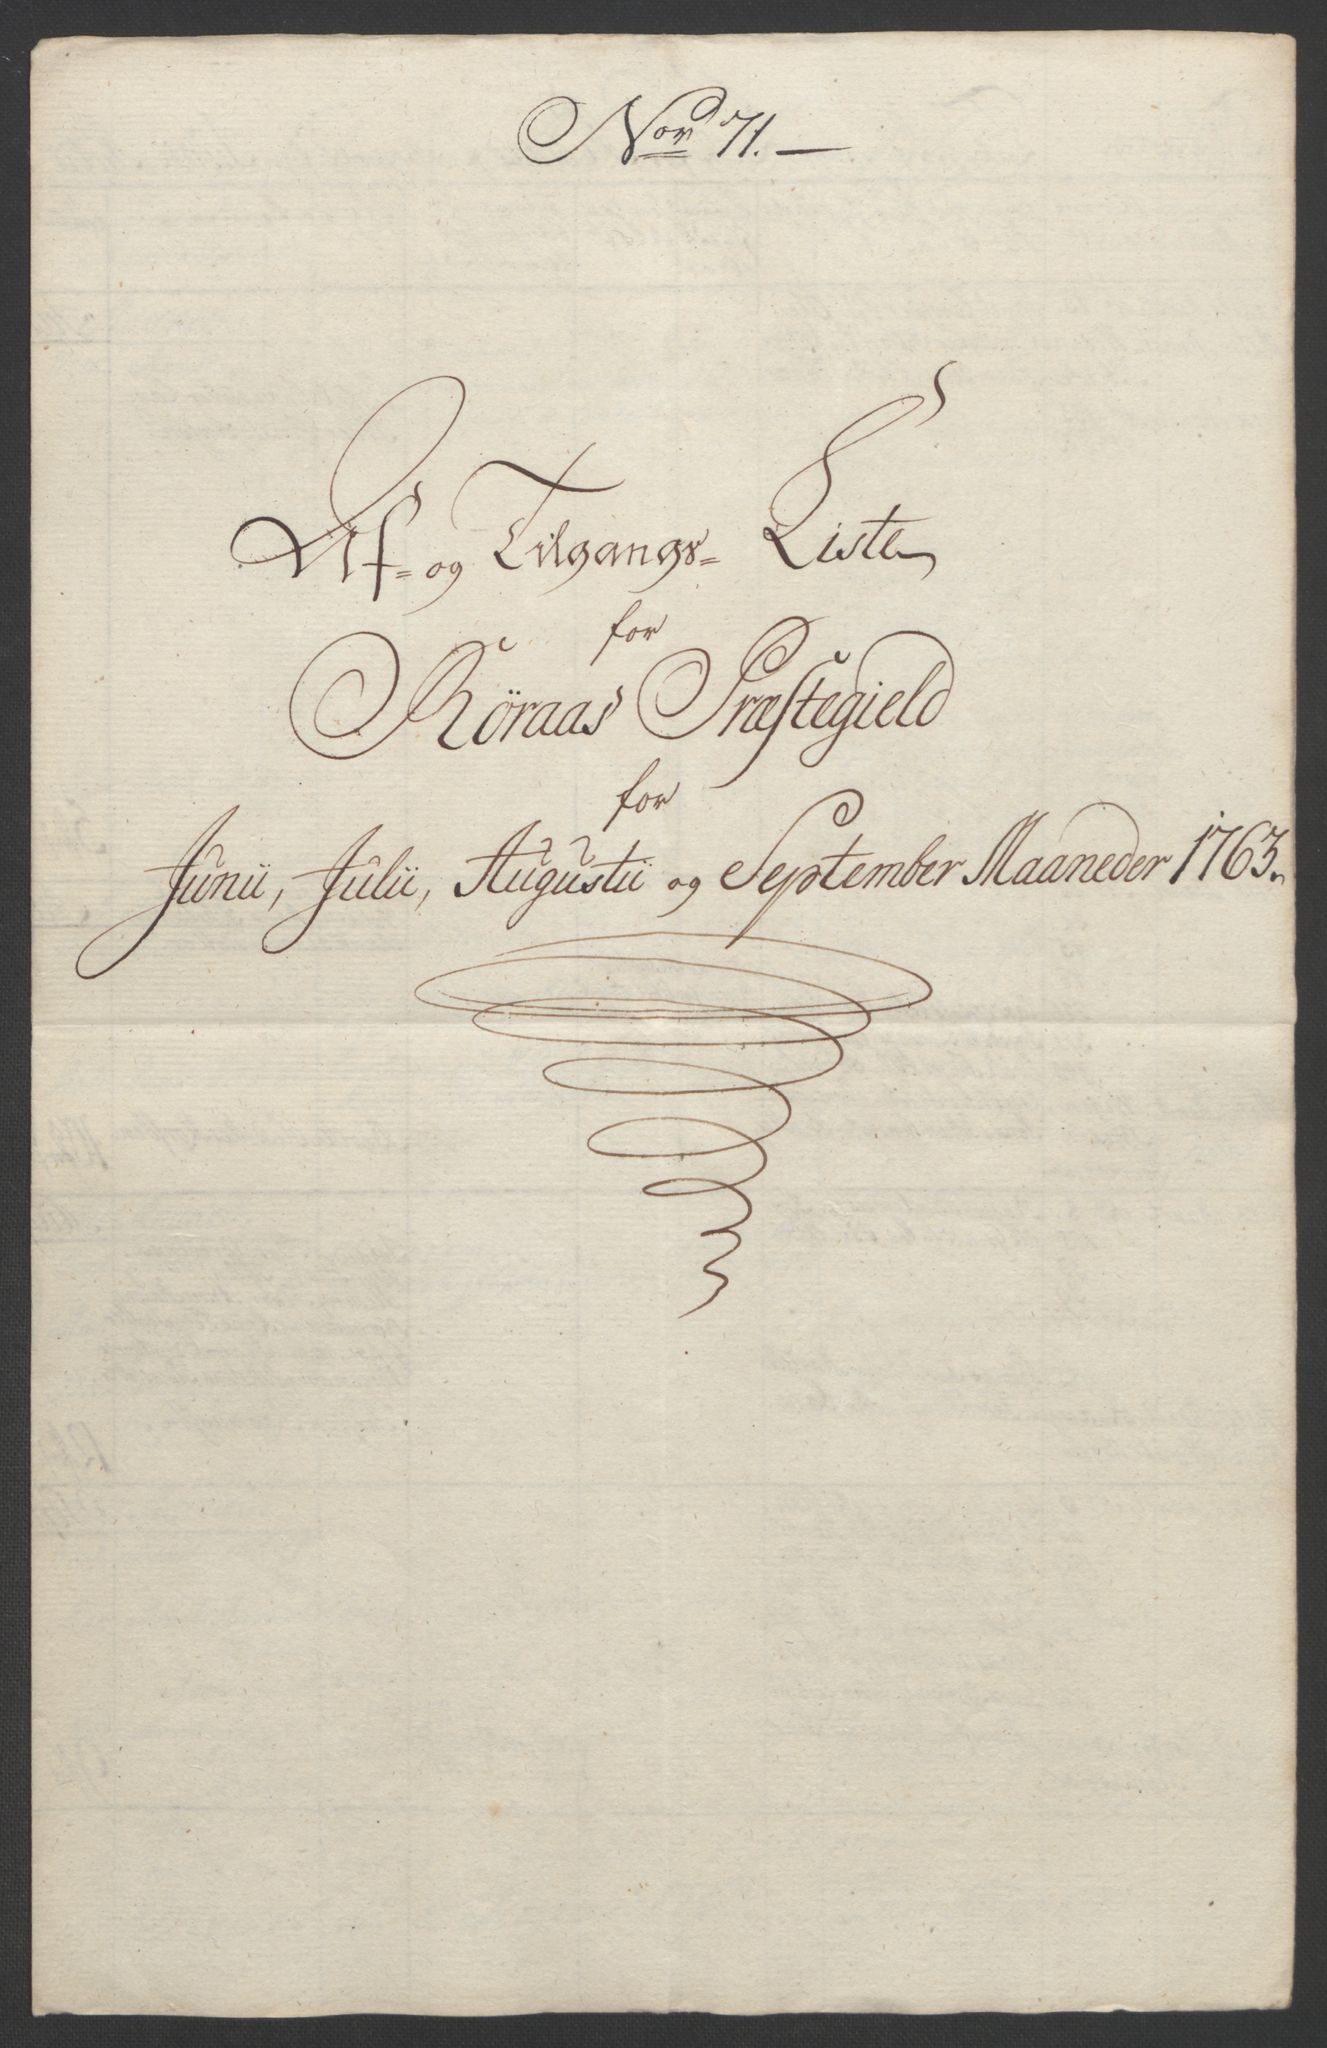 Nor 71. —
Af- og Tilgangs- Liste
for
Röraas Præstegield
for
Junii, Julii, Augustii og September Maaneder 1763.